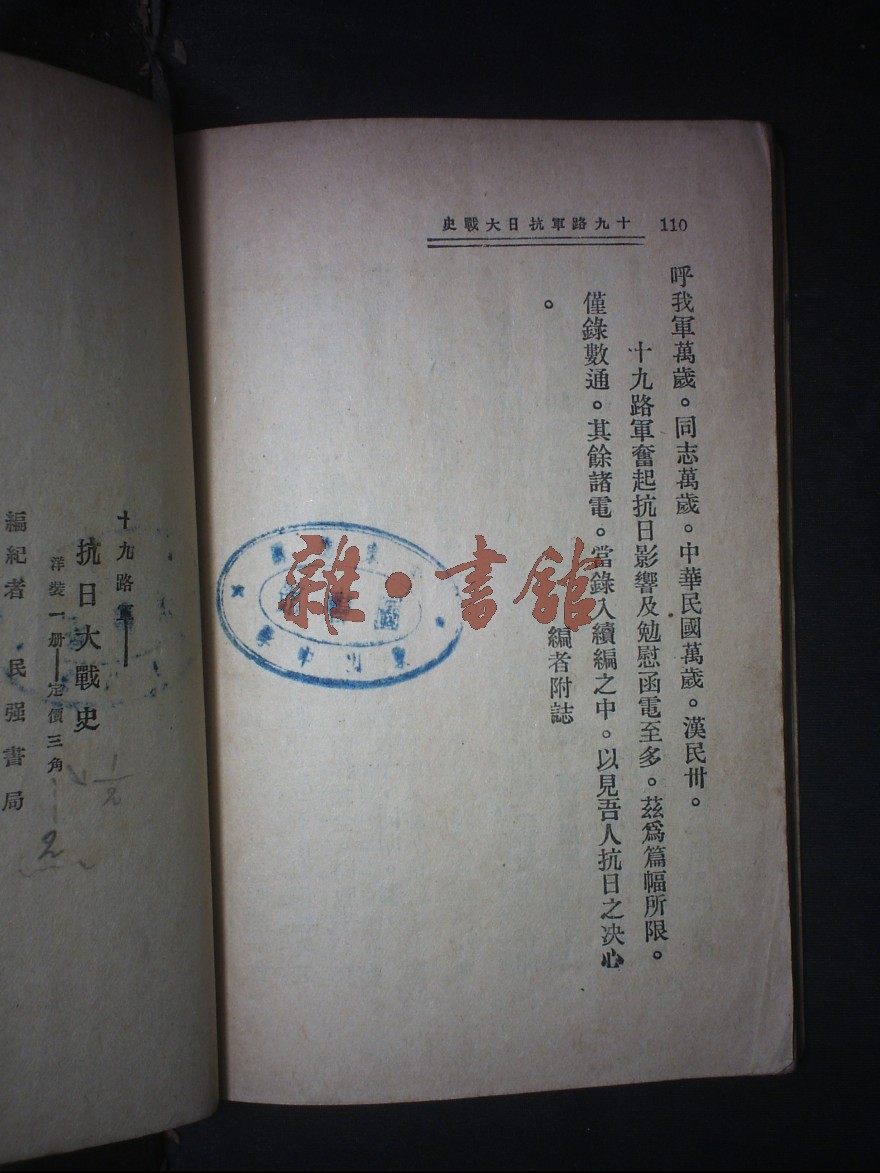 110
十九路軍抗日大戰史
呼我軍萬歲。同志萬歲。中華民國萬歲。漢民卅。
十九路軍奮起抗日影響及勉慰函電至多。茲爲篇幅所限。
僅錄數通。其餘諸電。當錄入續編之中。以見吾人抗日之决心
。
編者附誌
雜·書館
十九路軍——
抗日大戰史
洋裝一册——定價三角
1/2
2
編紀者 民强書局